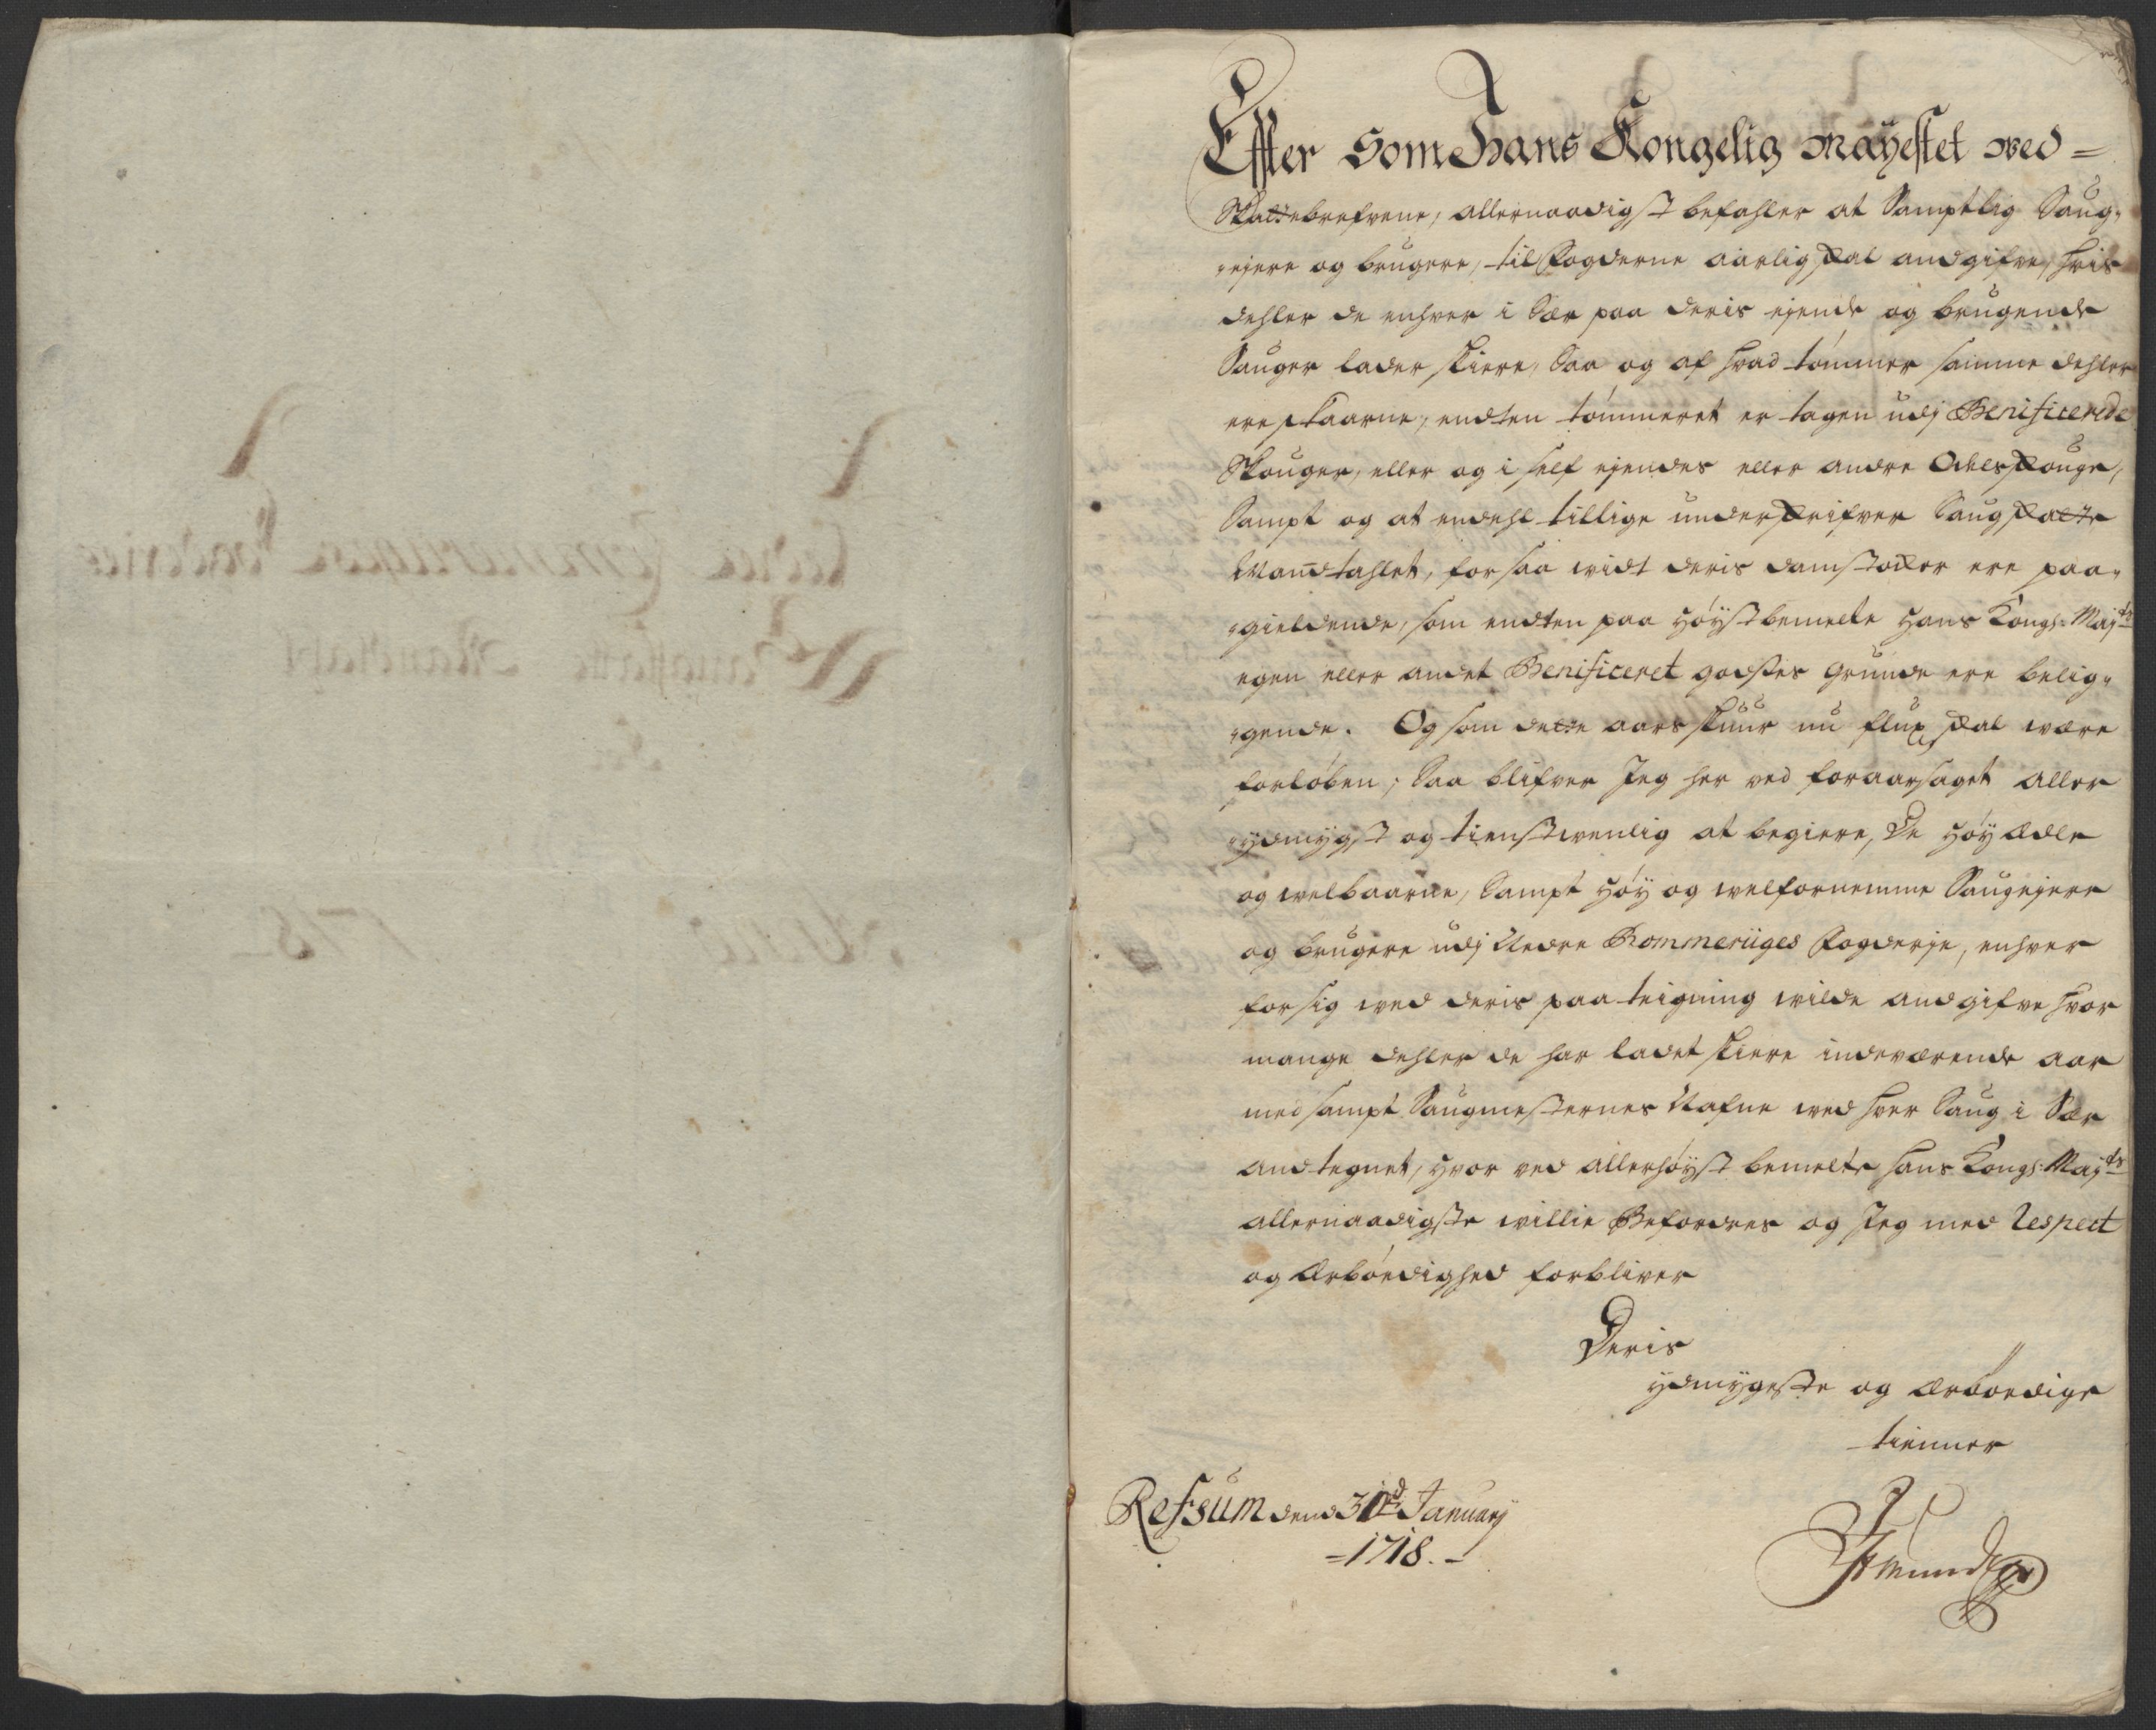 Effter som Hans Kongelig Mayestet ved =
Skattebrefvene, allernaadigst befahler at Samptlig Saug-
-ejere og brugere, til fogderne aarlig skal andgifve, hvis
dehler de enhver i Sær paa deris ejende og brugende
Sauger lader skiere, Saa og af hvad tømmer samme dehler
ere skaarne, endten tømmeret er tagen udj Benificerede
Skouger, eller og i self ejendes eller andre Odelsskouge,
Sampt og at endehl tillige underskrifver Saugskatte
Mandtahlet, for saa vidt deris damstokor ere paa-
-gieldende, som endten paa Høystbemelte Hans Kongl: Mayts
egen eller andet Benificeret godsses Grunde ere belig-
-gende. Og som dette aars skuur nu flux skal være
forløben; Saa blifver Jeg her ved foraarsaget aller
-ydmygst og tienstvenlig at begiere, De Høy Ædle
og velbaarne, Sampt Høy og velfornemme Saugejere
og brugere udj Nedre Rommeriiges fogderje, enhver
for sig ved deris paateigning vilde andgifve hvor
mange dehler de har ladet skiere indeværende aar
med sampt Saugmesternes Nafne ved hver Saug i Sær
andtegnet, Hvor ved allerhøyst bemelte Hans Kongl: Mayts
allernaadigste villie Befordres og Jeg med Respect
og Ærbødighed forbliver
Deris
ydmygeste og ærbødige
tienner
Refsum dend 31d January
- 1718. -